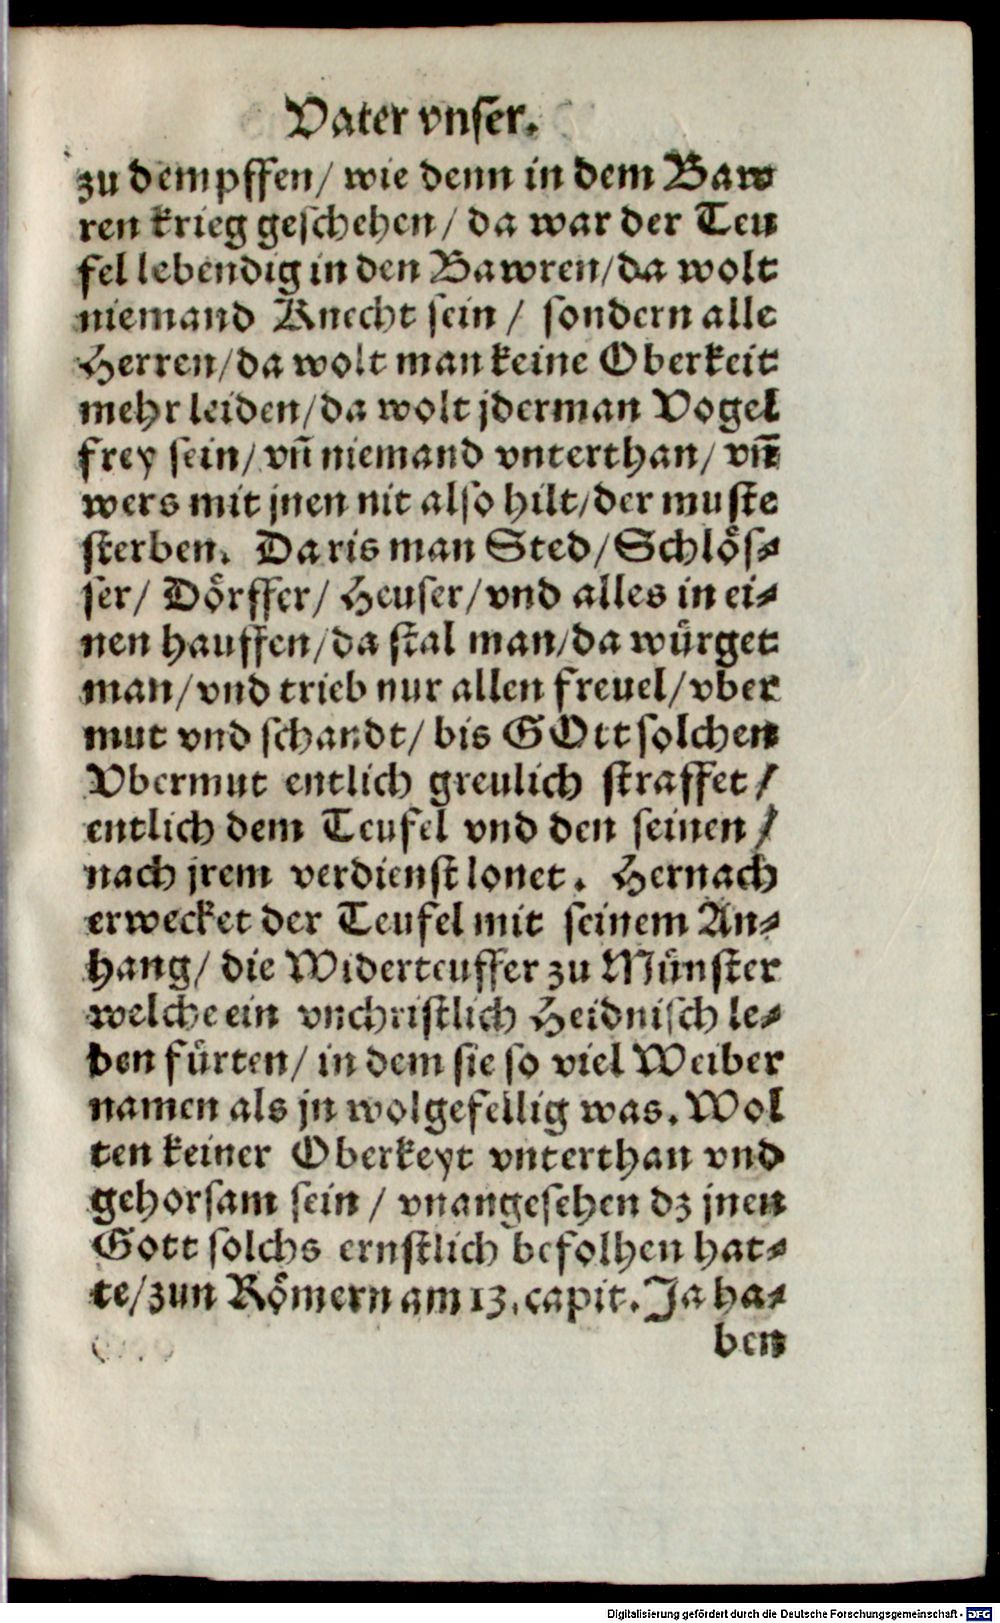 Vater vnser.
zu dempffen/ wie denn in dem Baw
ren krieg geschehen/ da war der Teu
fel lebendig in den Bawren/da wolt
niemand Knecht sein / sondern alle
Herren/da wolt man keine Oberkeit
mehr leiden/da wolt jderman Vogel
frey sein/ vñ niemand vnterthan/ vñ
wers mit jnen nit also hilt/der muste
sterben. Da ris man Sted/Schlös⸗
ser/ Dörffer/ Heuser/vnd alles in ei⸗
nen hauffen/da stal man/da würget
man/vnd trieb nur allen freuel/vber
mut vnd schandt/ bis GOtt solchen
Vbermut entlich greulich straffet /
entlich dem Teufel vnd den seinen /
nach jrem verdienst lonet. Hernach
erwecket der Teufel mit seinem An⸗
hang/ die Widerteuffer zu Münster
welche ein vnchristlich Heidnisch le⸗
ben fürten/ in dem sie so viel Weiber
namen als jn wolgefellig was. Wol
ten keiner Oberkeyt vnterthan vnd
gehorsam sein / vnangesehen dz jnen
Gott solchs ernstlich befolhen hat⸗
te/zun Römern am 13. capit. Ja ha⸗
ben
Digitalisierung gefördert durch die Deutsche Forschungsgemeinschaft - DFG